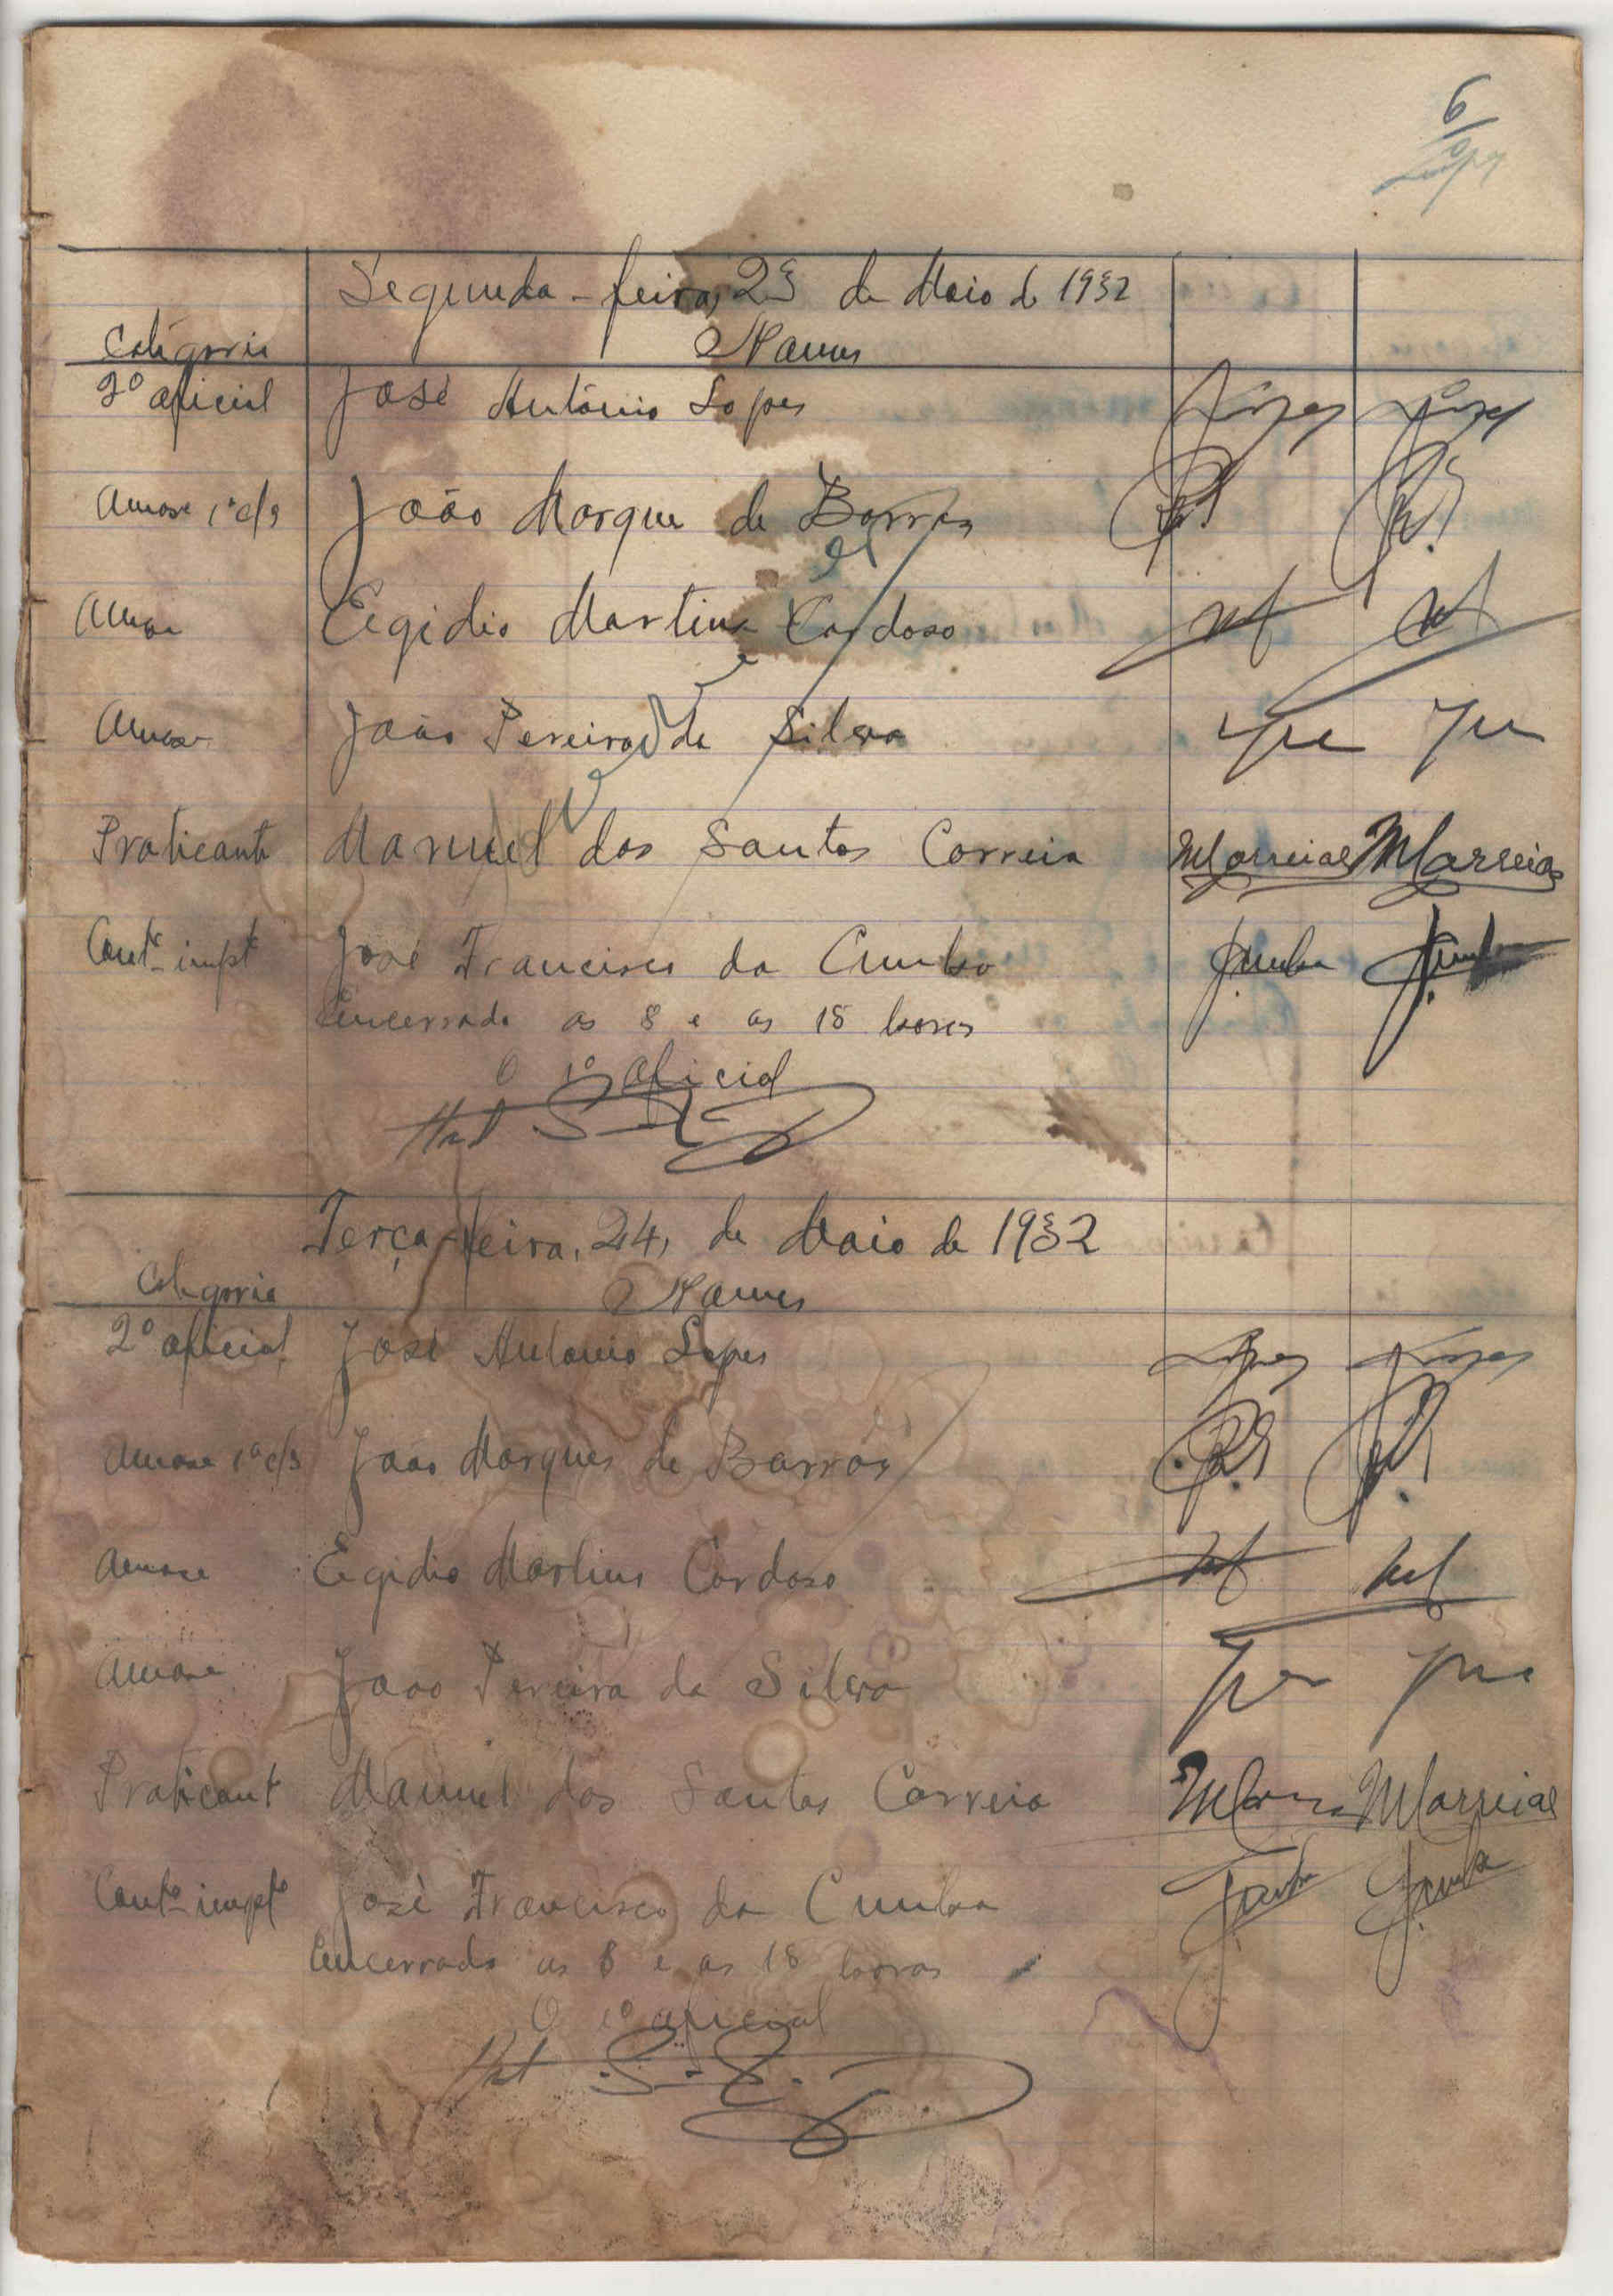 6
Lopes
Segunda-feira, 23 de Maio de 1932
Categoria Nomes
2º oficial José António Lopes Lopes Lopes
1ª cls João Marques de Barros
Egidio Martins Cardoso
João Pereira da Silva
Praticante Manuel dos Santos Correia MCorreia MCorreia
Contº impº José Francisco da Cunha JCunha JCunha
Encerrado as 8 e as 18 horas
O 1º oficial
Terça-feira, 24, de Maio de 1932
Categoria Nomes
2º oficial José Antonio Lopes Lopes Lopes
1ª cls João Marques de Barros
Egidio Martins Cardoso
João Pereira da Silva
Praticant Manuel dos Santos Correia MCorreia MCorreia
Contº impº José Francisco da Cunha JCunha JCunha
Encerrado as 8 e as 18 horas
O 1º oficial